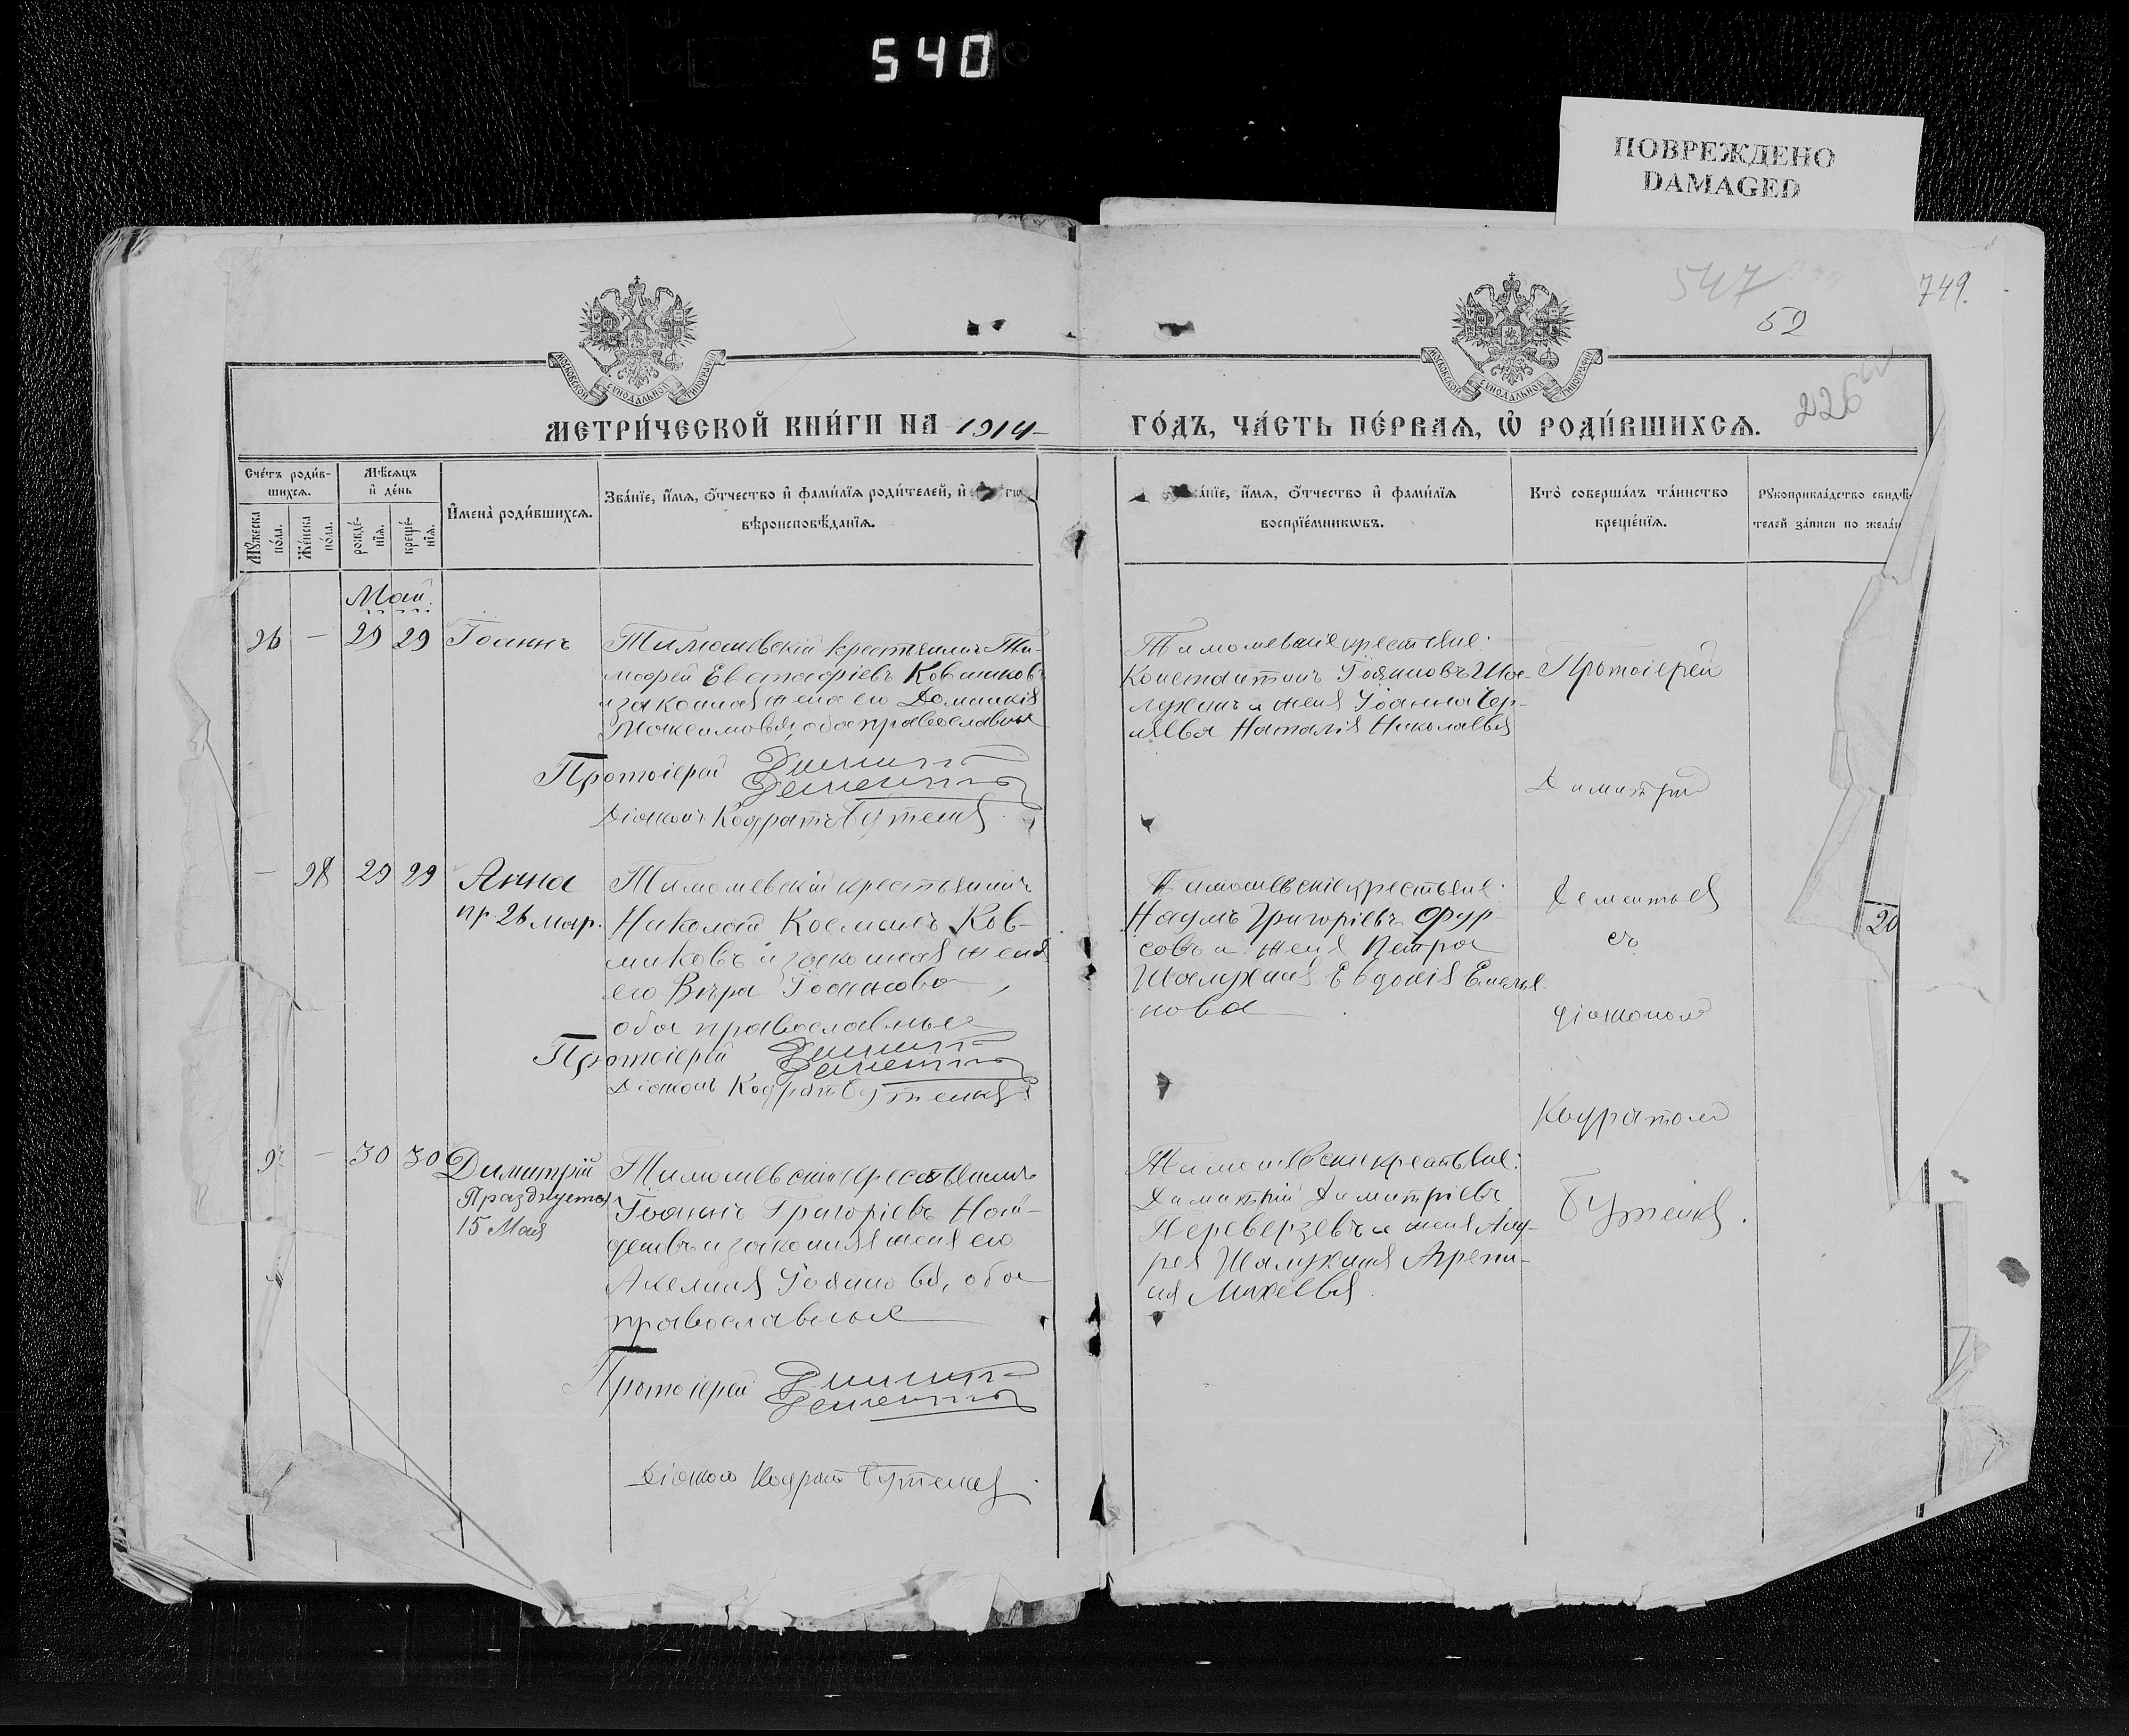 540
ПОВРЕЖДЕНО
DAMAGED
547
749.
52
226
МОСКОВСКОЙ СѴНОДАЛЬНОЙ ТИПОГРАФІИ
МОСКОВСКОЙ СѴНОДАЛЬНОЙ ТИПОГРАФІИ
МЕТРИ́ЧЕСКОЙ КНИ́ГИ НА 1914
ГО́ДЪ, ЧА́СТЬ ПЕ́РВАѦ, Ѡ҆ РОДИ́ВШИХСѦ.
Сче́тъ роди́в-
шихсѧ.
Мѣ́сѧцъ
и҆ де́нь
Мꙋ́жеска
по́ла.
Же́нска
по́ла.
рожде́-
нїѧ.
креще́-
нїѧ.
И҆мена̀ роди́вшихсѧ.
Зва́нїе, и҆́мѧ, ѻ҆́тчество и҆ фами́лїѧ роди́телей, и҆
вѣроисповѣ́данїѧ.
а́нїе, и҆́мѧ, ѻ҆́тчество и҆ фами́лїѧ
воспрїе́мникѡвъ.
Кто̀ соверша́лъ та́инство
креще́нїѧ.
Рꙋкоприкла́дство свидѣ́-
телей за́писи по жела́н
Май.
26 — 29 29 Іоаннъ
Тимошевскій крестьянинъ Ти-
мофей Евстафіевъ Ковшиковъ
и законная жена его Домникія
Максимова, оба православные
Протоіерей Димитрій
Дементьевъ
Діаконъ Кодратъ Бутенко
Тимошевскіе крестьяне:
Константинъ Іоанновъ Ша-
лухинъ и жена Іоанна Чер-
няева Наталія Николаева
Протоіерей
Димитрій
— 28 29 29 Анна
пр. 26 мар.
Тимошевскій крестьянинъ
Николай Космынъ Ков-
шиковъ и законная жена
его Вѣра Іоаннова,
оба православные
Протоіерей Димитрій
Дементьевъ
Діаконъ Кодратъ Бутенко
Тимошевскіе крестьяне:
Наумъ Григоріевъ Фур-
совъ и жена Петра
Шалухина Евдокія Емелья-
нова
Дементьев
съ
діакономъ
20
Кодратомъ
27 — 30 30 Димитрій
Празднуется
15 Мая
Тимошевскій крестьянинъ
Іоаннъ Григоріевъ Най-
деновъ и законная жена его
Акелина Іоаннова, оба
православные
Протоіерей Димитрій
Дементьевъ
Діаконъ Кодратъ Бутенко
Тимошевскіе крестьяне:
Димитрій Димитріевъ
Переверзевъ и жена Анд-
рея Шалухина Агрепи-
на Михеева
Бутенко.